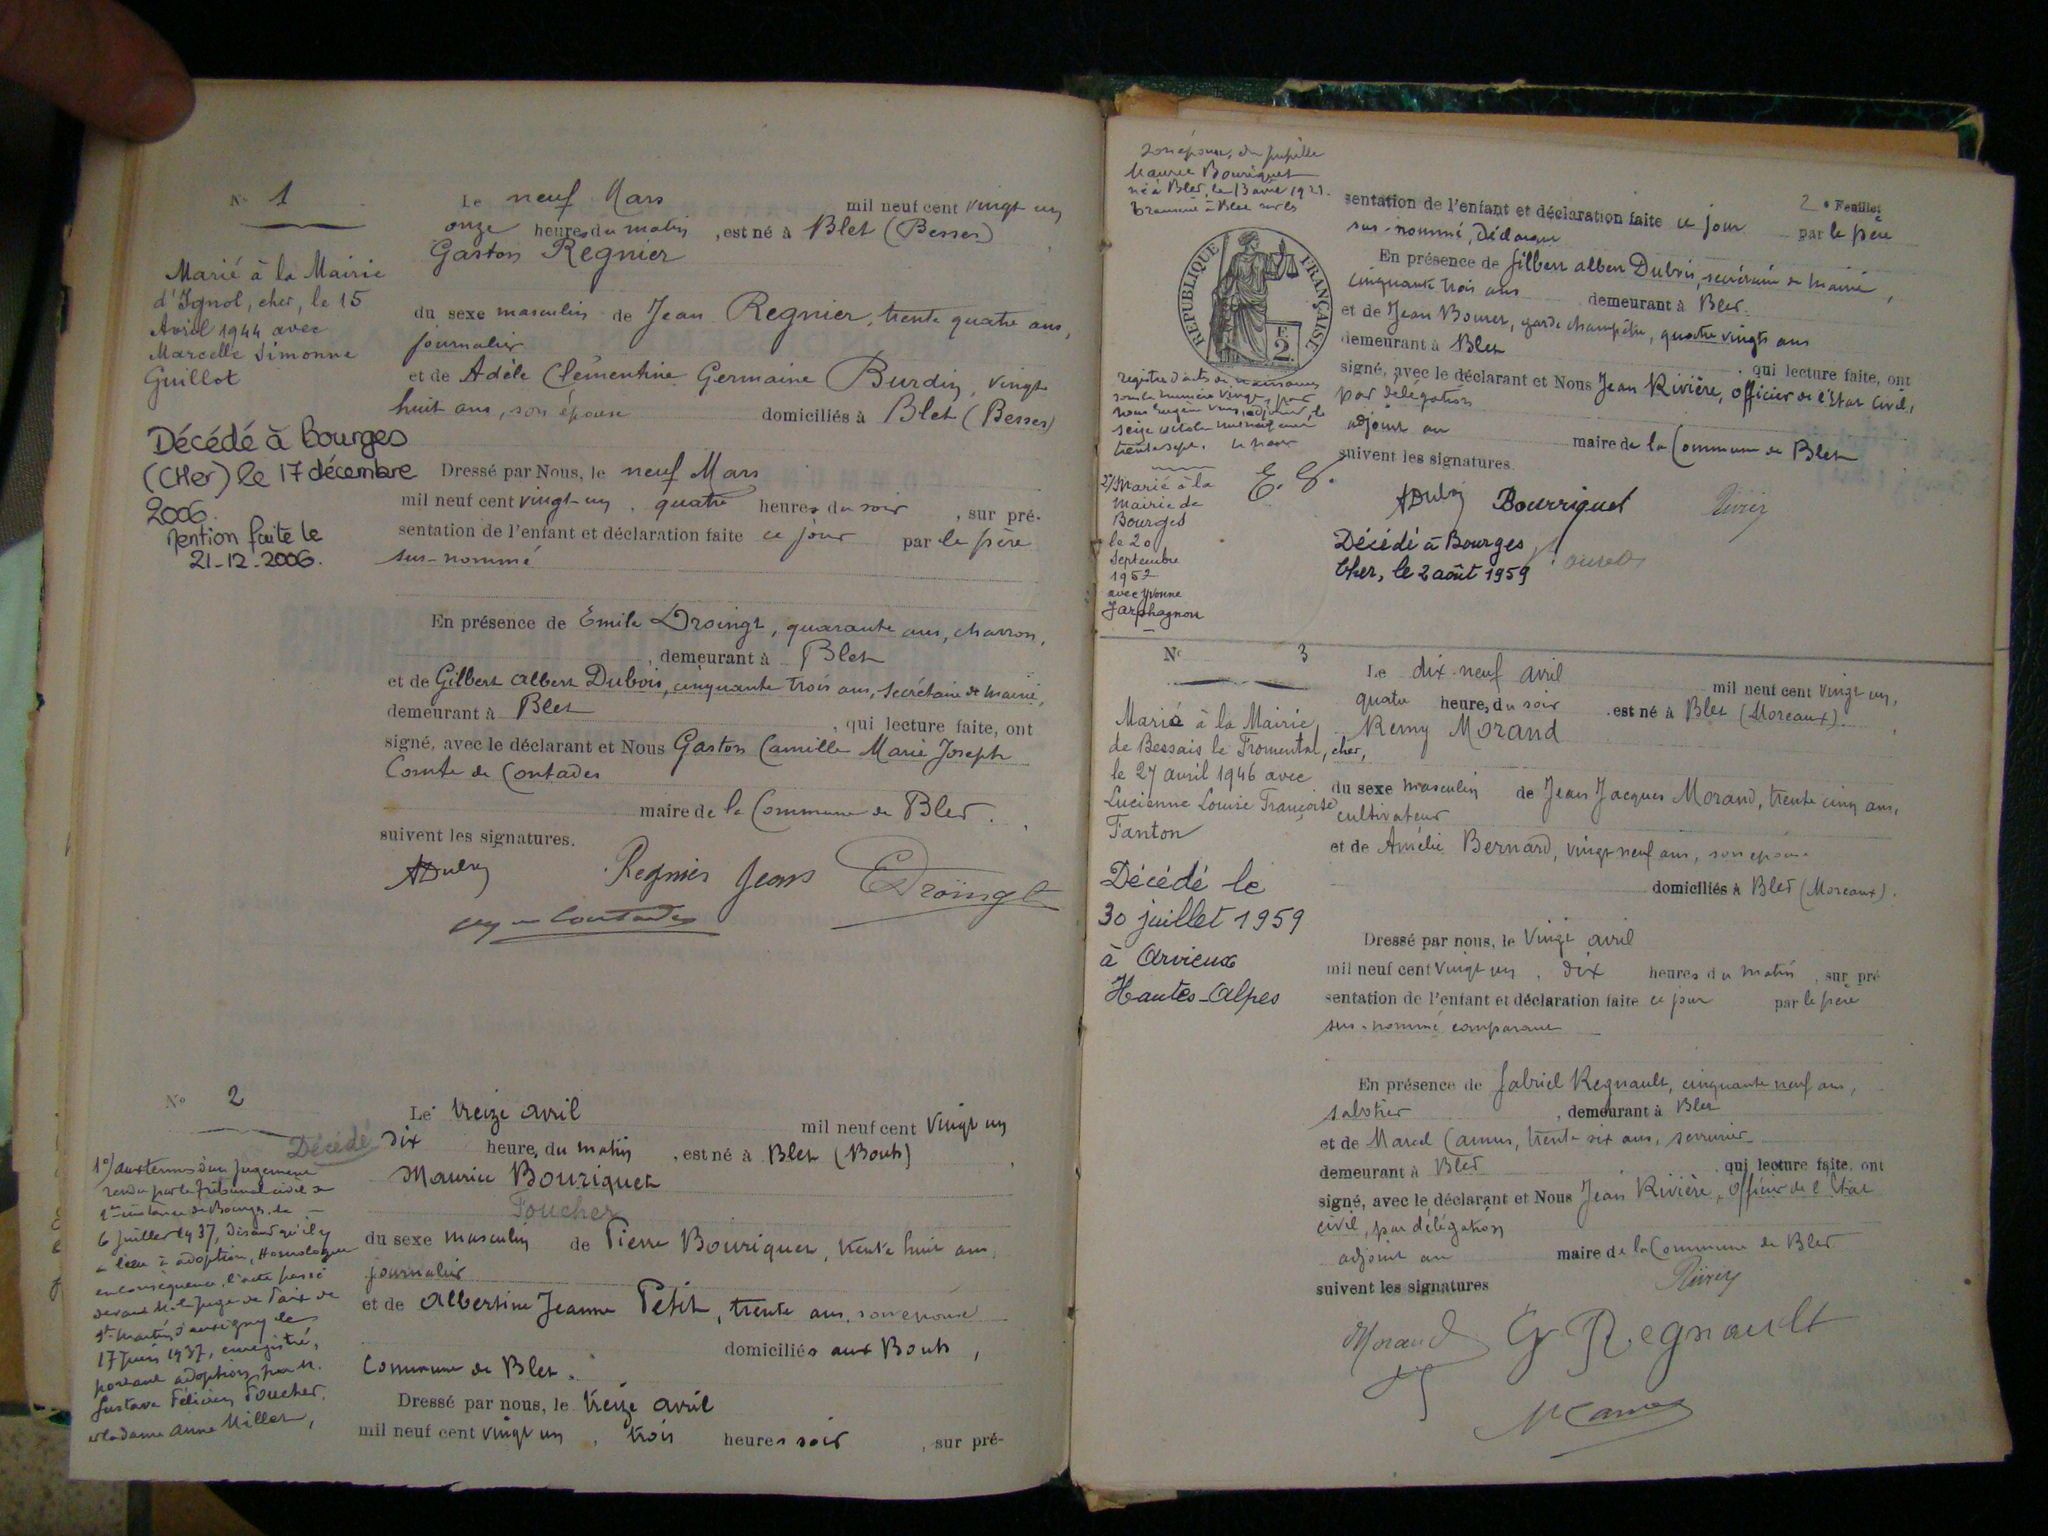 N° 1
Marié à la Mairie
d'Ignol, cher, le 15
Avril 1944 avec
Marcelle Simonne
Guillot
Décédé à Bourges
(Cher) le 17 décembre
2006.
Mention faite le
21-12-2006.
Le neuf Mars mil neuf cent vingt un
onze heures du matin, est né à Blet (Besses)
Gaston Regnier
du sexe masculin de Jean Regnier, trente quatre ans,
journalier
et de Adèle Clémentine Germaine Burdin, vingt
huit ans, son épouse domiciliés à Blet (Besses)
Dressé par Nous, le neuf Mars
mil neuf cent vingt-un, quatre heures du soir, sur pré-
sentation de l'enfant et déclaration faite ce jour par le père
sus-nommé
En présence de Emile Droingt, quarante ans, charron,
, demeurant à Blet
et de Gilbert Albert Dubois, cinquante trois ans, secrétaire de mairie,
demeurant à Blet, qui lecture faite, ont
signé, avec le déclarant et Nous Gaston Camille Marie Joseph
Comte de Contades
maire de la Commune de Blet.
suivent les signatures.
ADubois Regnier Jean EDroingt
N° 2
Décédé
1°) aux termes d'un jugement
rendu par le Tribunal civil de
1ère instance de Bourges, le
6 juillet 1937, disant qu'il y
a lieu à adoption, Homologue
en conséquence, l'acte passé
devant M. le Juge de Paix de
St Martin d'Auxigny le
17 juin 1937, enregistré,
portant adoption, par M.
Gustave Félicien Foucher,
et Madame Anne Millet,
Le treize avril mil neuf cent vingt un
dix heures du matin, est né à Blet (Bouts)
Maurice Bouriquet
Foucher
du sexe masculin de Pierre Bouriquet, trente huit ans,
journalier
et de Albertine Jeanne Petit, trente ans, son épouse
domiciliés aux Bouts,
Commune de Blet.
Dressé par nous, le treize avril
mil neuf cent vingt un, trois heures soir, sur pré-
son épouse, du pupille
Maurice Bouriquet
né à Blet, le 13 avril 1921.
Transcrit à Blet sur les
RÉPUBLIQUE FRANÇAISE
F.
2
registre d'actes de naissances
sous le numéro vingt, par
nous adjoint, le
seize octobre mil neuf cent
trente sept. Le Maire
E. G.
2°/ Marié à la
Mairie de
Bourges
le 20
Septembre
1952
avec Yvonne
Jarphagnon
2e Feuillet
sentation de l'enfant et déclaration faite ce jour par le père
sus-nommé, Déclarant
En présence de Gilbert Albert Dubois, secrétaire de mairie,
cinquante trois ans demeurant à Blet.
et de Jean Bouret, garde champêtre, quatre vingts ans
demeurant à Blet, qui lecture faite, ont
signé, avec le déclarant et Nous Jean Rivière, officier de l'Etat civil,
par délégation
adjoint au maire de la Commune de Blet
suivent les signatures.
ADubois Bourriquet Rivière
Décédé à Bourges
Cher, le 2 août 1959
N° 3
Marié à la Mairie
de Bessais le Fromental, cher,
le 27 avril 1946 avec
Lucienne Louise Françoise
Tanton
Décédé le
30 juillet 1959
à Arvieux
Hautes-Alpes
Le dix-neuf avril mil neuf cent vingt un,
quatre heures du soir est né à Blet (Moreaux).
Remy Morand
du sexe masculin de Jean Jacques Morand, trente cinq ans,
cultivateur
et de Amélie Bernard, vingt neuf ans, son épouse
domiciliés à Blet (Moreaux).
Dressé par nous, le vingt avril
mil neuf cent vingt un, dix heures du matin, sur pré
sentation de l'enfant et déclaration faite ce jour par le père
sus-nommé comparant
En présence de Gabriel Regnault, cinquante neuf ans,
sabotier, demeurant à Blet
et de Marcel Camus, trente six ans, serrurier
demeurant à Blet, qui lecture faite, ont
signé, avec le déclarant et Nous Jean Rivière, officier de l'Etat
civil, par délégation
adjoint au maire de la Commune de Blet
suivent les signatures Rivière
Morand G Regnault
M Camus